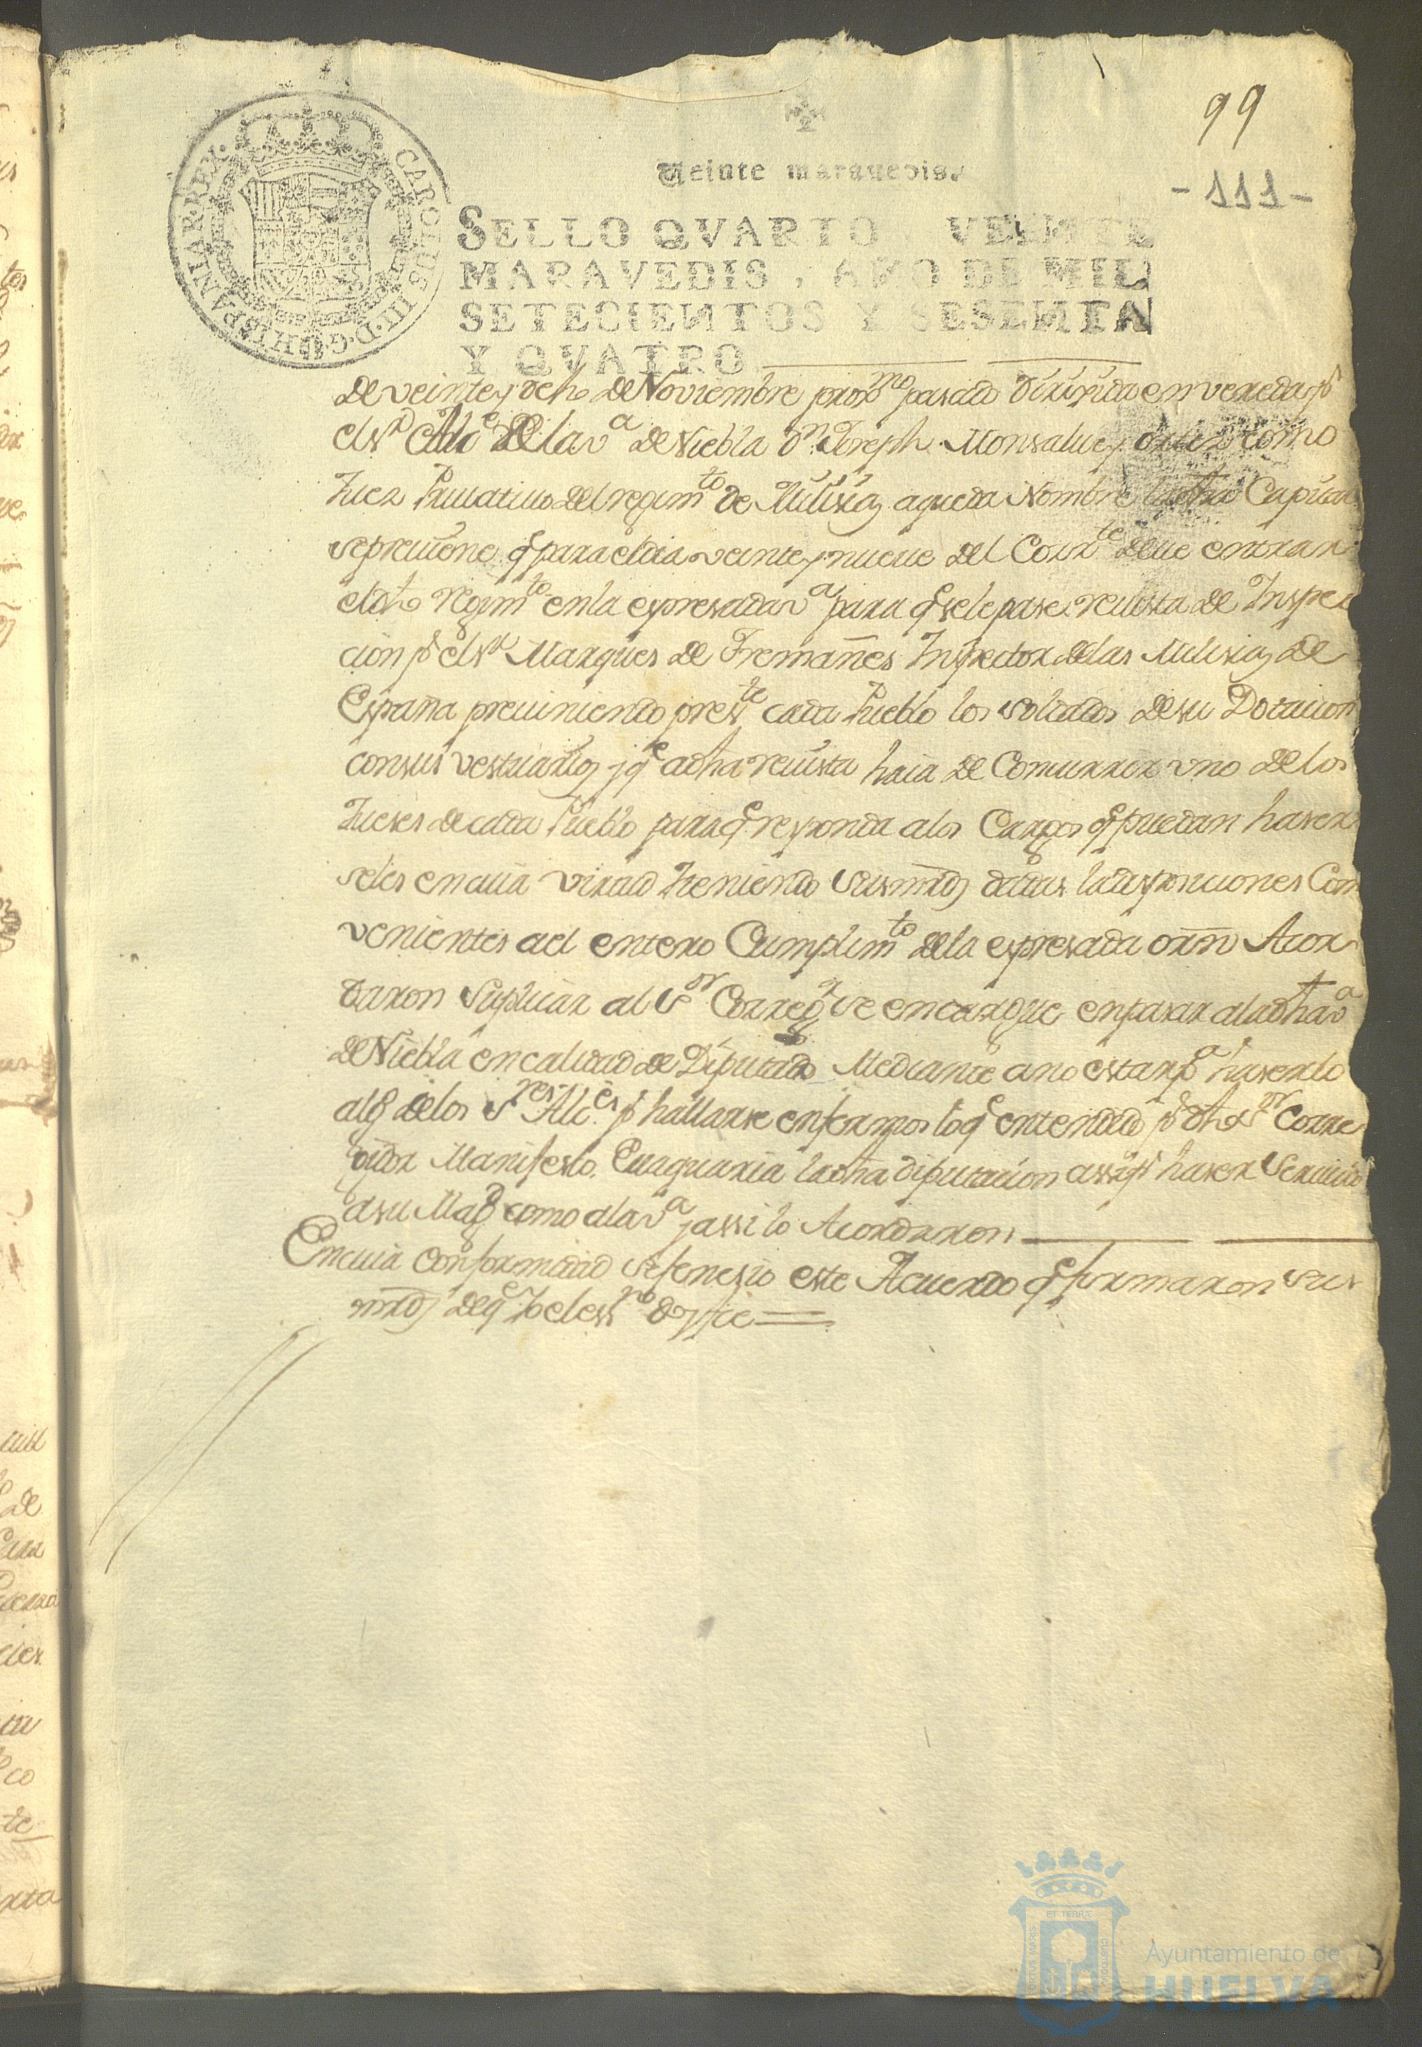 99
Veinte maravedis.
- 111 -
CAROLUS III D. G. HISPANIAR. REX.
SELLO QVARTO VEINTE
MARAVEDIS, AÑO DE MIL
SETECIENTOS Y SESENTA
Y QVATRO
de veinte y ocho de Noviembre prox.mo pasado en vereda
el de la v.a de Niebla D.n Joseph Monsalve como
Juez Privativo del regim.to de Milisias a queda Nombre Capital
se previene q.e para el dia veinte y nueve del Corr.te deve entrar
el dho regim.to en la espresada v.a para q.e se le pase revista de Inspec
cion p.r el s.r Marques de Tremañes Inspector de las Milisias de
España previniendo pres.te cada Pueblo los soldados de su Dotacion
con sus vestuarios y q.e a dha revista haia de Comurrer uno de los
Jueses de cada Pueblo para q.e responda a los Cargos q.e puedan haser
seles en cuia virtud teniendo sus mrds dadas las disposiciones Com
venientes a el entero Cumplim.to de la espresada orn Acor
daron Suplicar al S.or Correg.r se encargue en pasar a la dha v.a
de Niebla en calidad de Diputado Mediante a no estar p.a haserlo
alg.o de los S.res Alc.es p.r hallarse enfermos lo q.e entendido p.r dho S.or Corre
gidor Manifesto Euaquaria la dha diputacion assi p.r haser Servicio
a su Mag.d como a la v.a y assi lo Acordaron
En cuia conformidad se fenesio este Acuerdo q.e firmaron sus
mrds de q.e Yo el ess.no doy fee
Ayuntamiento de
HUELVA